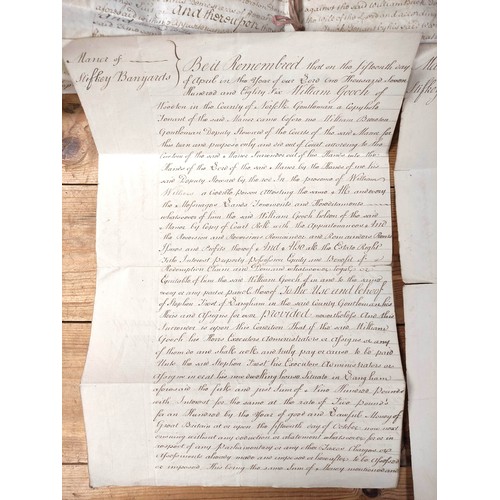 and thereupon
Manor of
Stifkey Banyards
Be it Remembred that on the fifteenth day
of April in the Year of our Lord One thousand Seven
Hundred and Eighty Six William Gooch of
in the County of Norfolk Gentleman a Copyhold
Tenant of the said Manor came before me William
Gentleman Deputy Steward of the Courts of the said Manor for
this turn and purpose only and did out of Court according to the
Custom of the said Manor Surrender out of his Hands into the
Hands of the Lord of the said Manor by the Hands of me his
said Deputy Steward by the rod In the presence of William
Williams a Credible person Attesting the same All and every
the Messuages Lands Tenements and Hereditaments
whatsoever of him the said William Gooch holden of the said
Manor by Copy of Court Roll with the Appurtenances And
the Reversion and Reversions Remainder and Remainders Rents
Issues and Profits thereof And Also all the Estate Right
Title Interest Property Possession Equity and Benefit of
Redemption Claim and Demand whatsoever legal or
Equitable of him the said William Gooch of in and to the same
every or any part or parcel thereof To the Use and behoof
of Stephen Frost of Langham in the said County Gentleman his
Heirs and Assigns for ever Provided nevertheless And this
Surrender is upon this Condition That if the said William
Gooch his Heirs Executors Administrators or Assigns or any
of them do and shall well and truly pay or cause to be paid
Unto the said Stephen Frost his Executors Administrators or
Assigns in or at his now dwelling house Situate in Langham
aforesaid the full and just Sum of Hundred Pounds
with Interest for the same at the rate of Pounds
for an Hundred by the Year of good and Lawful Money of
Great Britain at or upon the fifteenth day of October now next
ensuing without any deduction or abatement whatsoever for or in
respect of any Parliamentary or any other Taxes Charges or
Assessments already made and imposed or hereafter to be Assessed
or imposed This being the same Sum of Money mentioned and